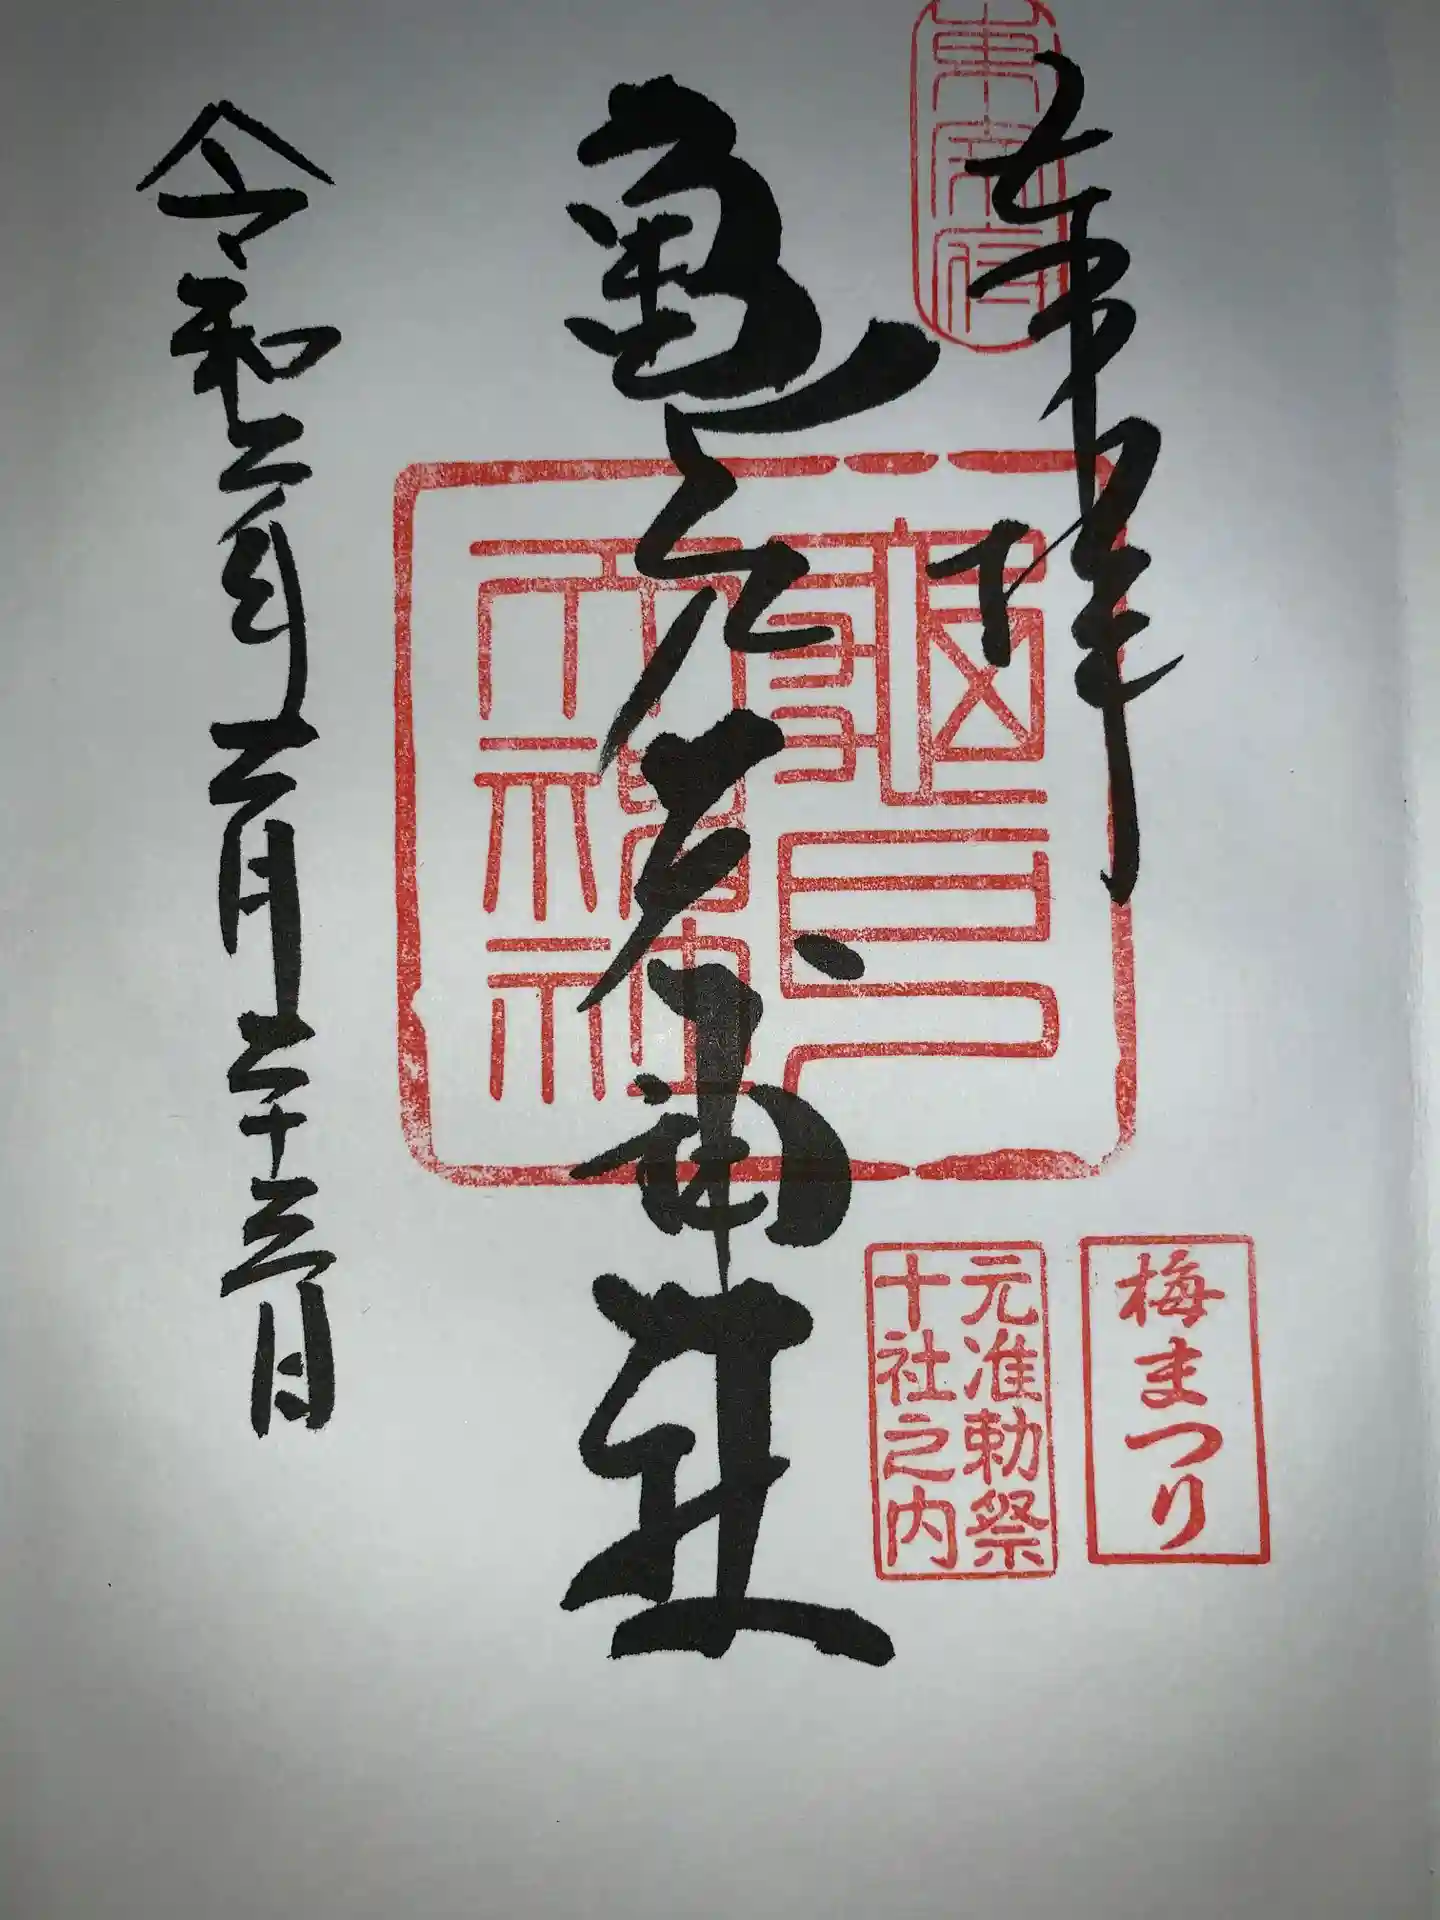 東宰府
奉拝
亀戸天神社
龜戸天神社
令和二年二月二十三日
梅まつり
元准勅祭
十社之内